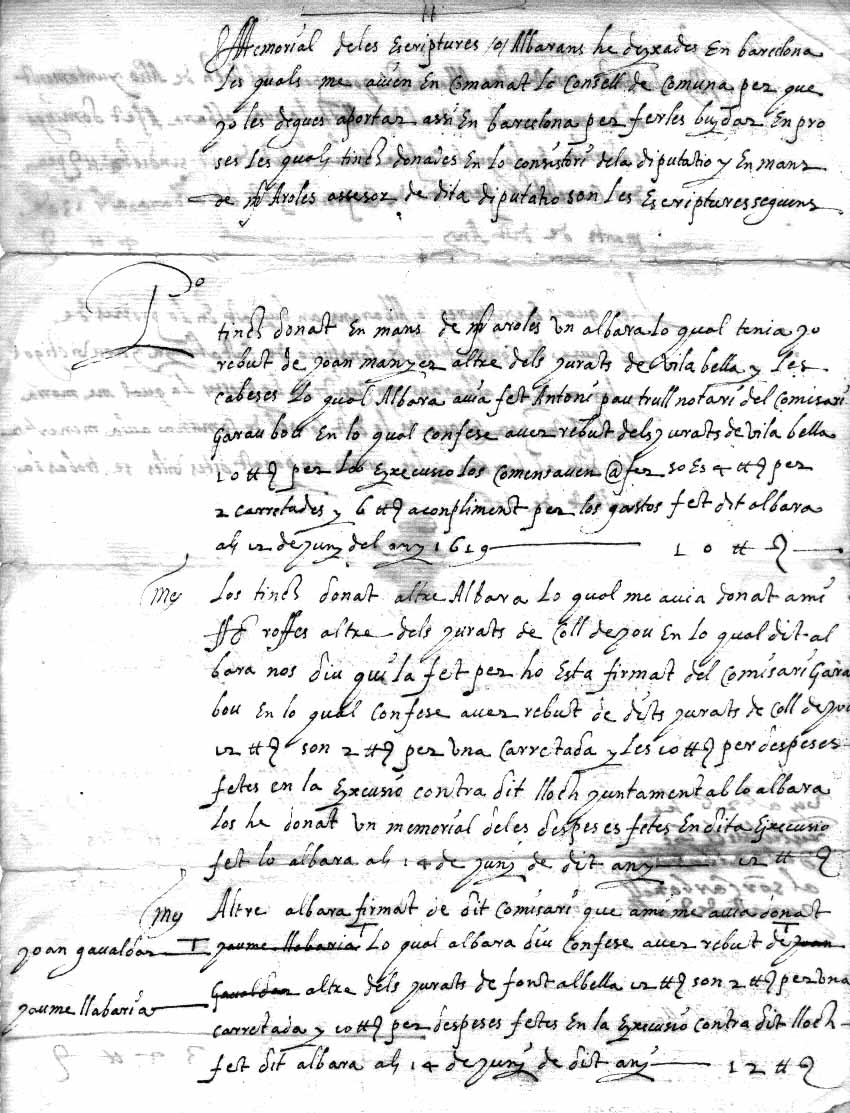 Memorial deles Escriptures /o/ Albarans he deyxades En barcelona
les quals me avien En comanat lo Consell de Comuna per que
yo les degues aportar assi En barcelona per ferles buydar En pro
ses les quals tinch donades En lo consistori dela diputatio y En mans
de mr Aroles assesor de dita diputatio son les Escriptures seguens
Po
tinch donat En mans de mr aroles Un albara lo qual tenia yo
rebut de joan manyer altre dels jurats de vila bella y les
cabeses lo qual Albara avia fet Antoni pau trull notari del Comisari
Garau bou En lo qual confese aver rebut dels jurats de vila bella
10 ll per los Exxecusio los comensaven @ fer so Es 4 ll per
2 carretades y 6 ll a conpliment per los gastos fet dit albara
als 12 de juny del any 1619 10 ll
Mes los tinch donat altre Albara lo qual me avia donat a mi
roffes altre dels jurats de Coll de jou En lo qual dit al
bara nos diu qui la fet per ho Esta firmat del Comisari Gara
bou En lo qual Confese aver rebut de dits jurats de Coll de jou
12 ll son 2 ll per una Carretada y les 10 ll per despeses
fetes en la Exxecusio contra dit lloch juntament ab lo albara
los he donat Un memorial deles despeses fetes En dita Exxecusio
fet lo albara als 14 de juny de dit any 12 ll
Mes Altre albara firmat de dit Comisari que a mi me avia donat
joan gavaldar jaume llabaria lo qual albara diu confese aver rebut de joan
Gavaldar altre dels jurats de font albella 12 ll son 2 ll per una
jaume llabaria
carretada y 10 ll per despeses fetes En la Exxecusio contra dit lloch
fet dit albara als 14 de juny de dit any 12 ll